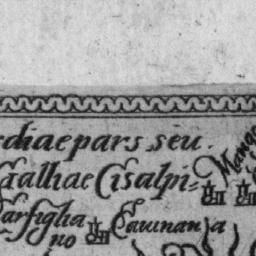 ediae pars seu.
Galliae Cisalpi=
Carfiglia
no
Cauinana
Mango